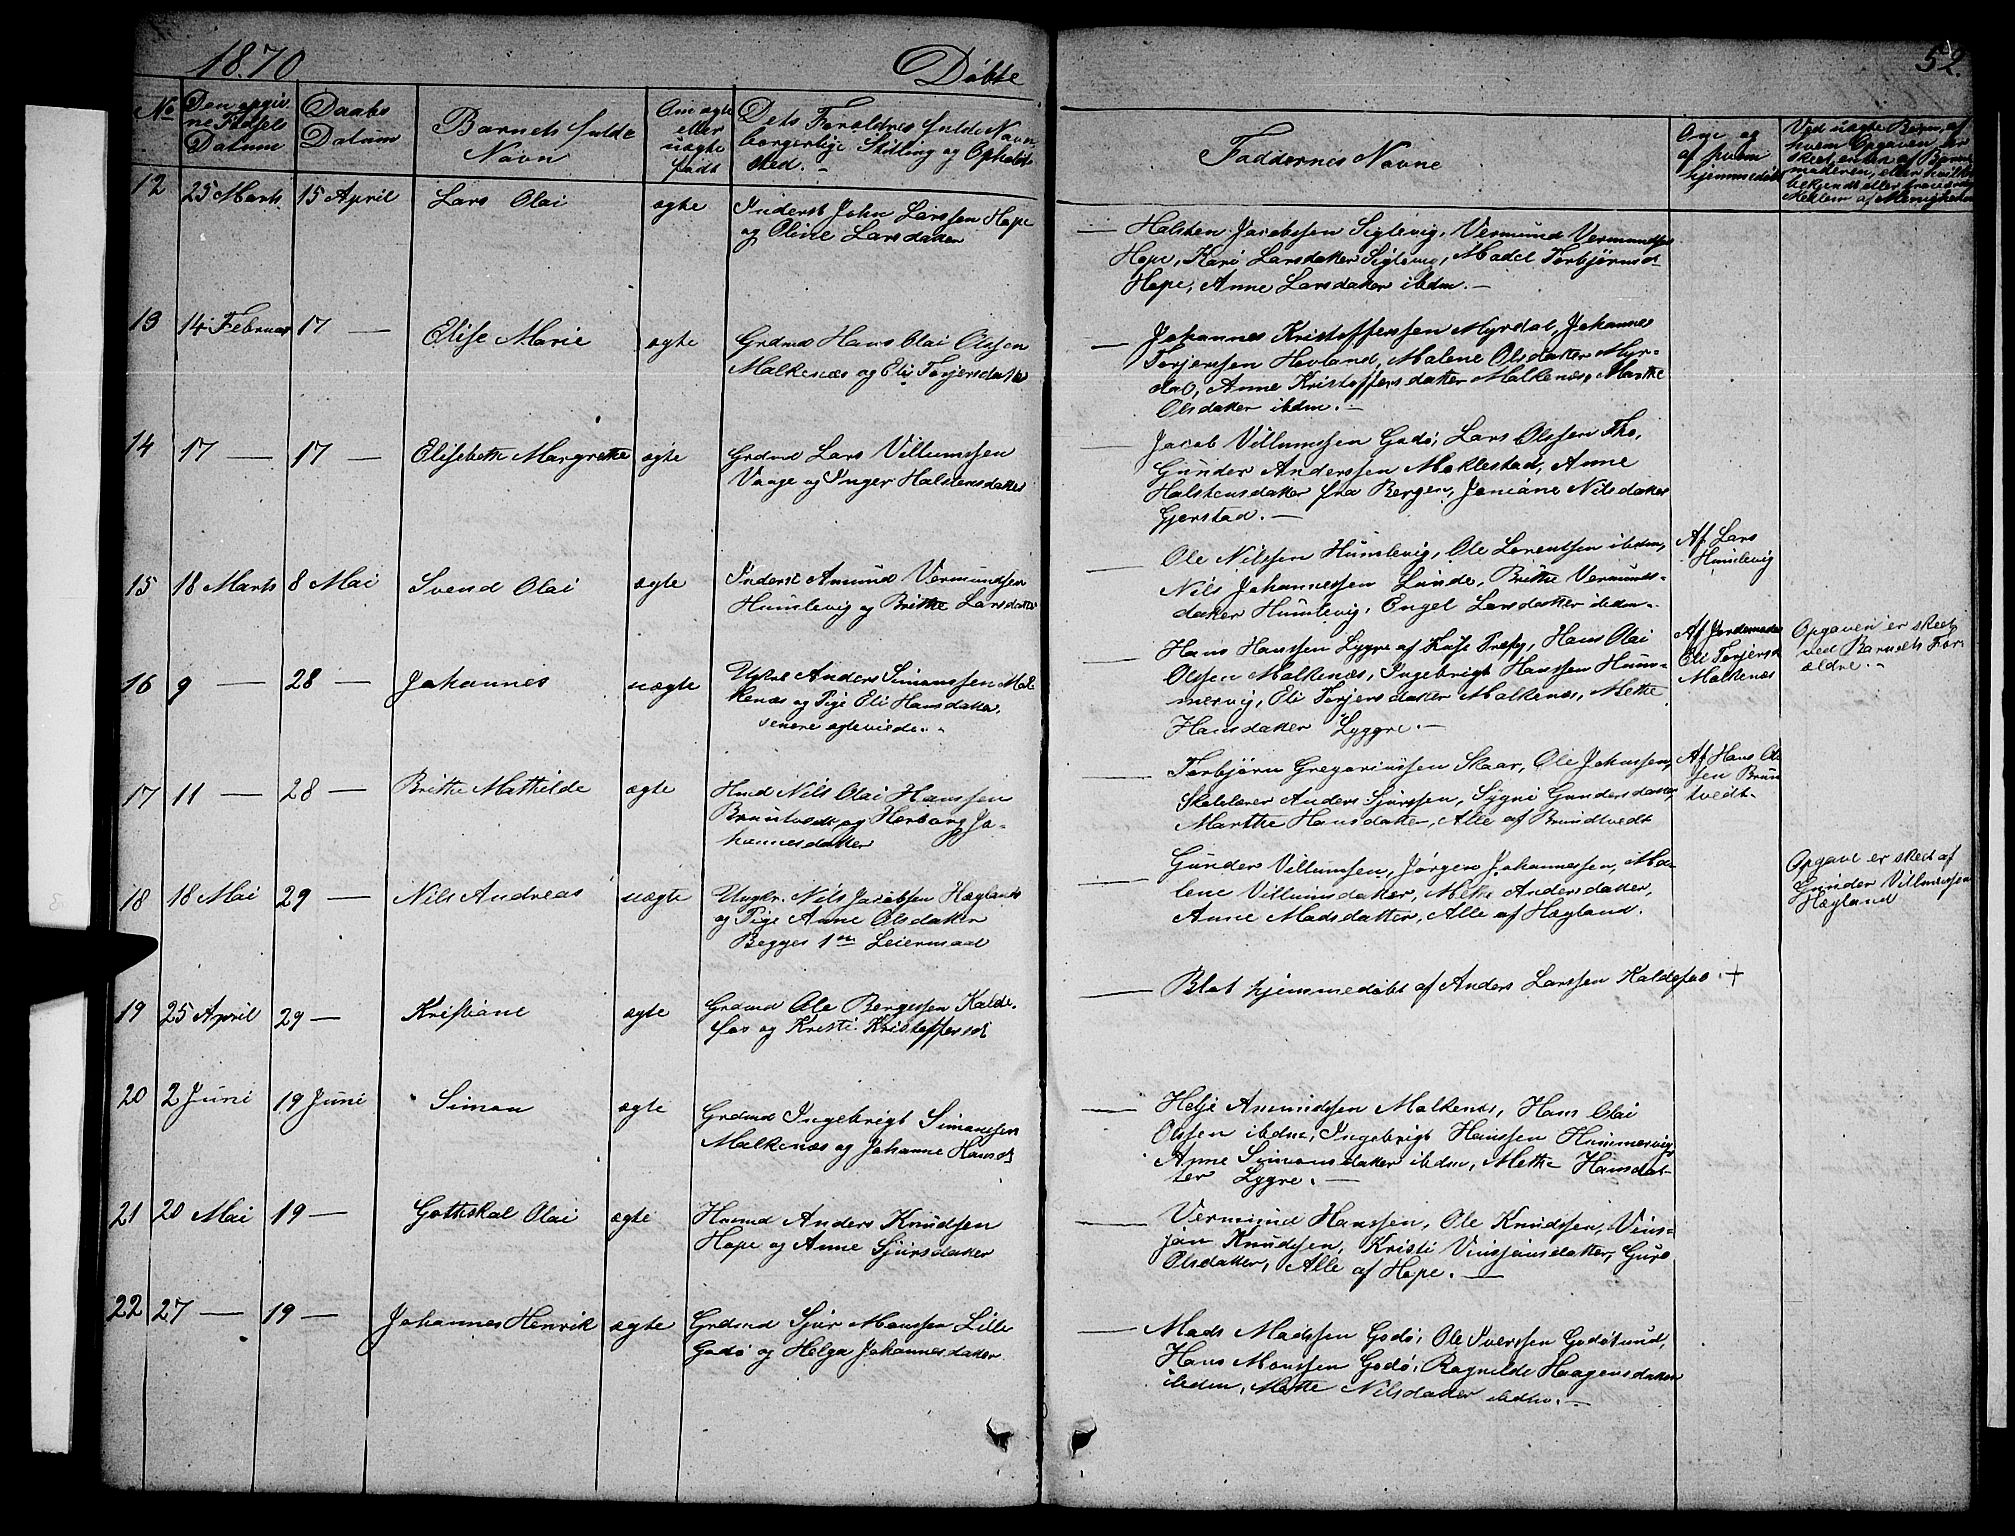 1870
Døbte
52.
No
Den opgiv
ne Fødsels
Datum
Daabs
Datum
Barnets fulde
Navn
Om ægte
eller
uægte
født
Dets Forældres fulde Navn
borgerlige Stilling og Opholds
sted. -
Faddernes Navne
Om og
af hvem
hjemmedøbt
Ved uægte Børn, af
hvem Opgaven er
skeet, enten af Barne
moderen, eller
bekjendt eller
Medlem af Menigheden
12
25 Marts
15 April
Lars Olai
ægte
Inderst John Larssen Hope
og Oline Larsdatter
Halsten Jacobssen Siglevig, Vermund Vermundss
Hope, Kari Larsdatter Siglevig, Madel Torbjørnsd
Hope, Anne Larsdatter ibdm. -
13
14 Februar
17 —
Elise Marie
ægte
Grdmd Hans Olai Olssen
Malkenæs og Eli Torjersdatter
Johannes Kristofferssen Myrdal, Johannes
Torjerssen Hovland, Malene Olsdatter Myr-
dal, Anne Kristoffersdatter Malkenæs, Marthe
Olsdatter ibdm. -
14
17 —
17 —
Elisebeth Margrethe
ægte
Grdmd Lars Villumssen
Vaage og Inger Halstensdatter
Jacob Villumssen Godø, Lars Olssen Tho,
Gunder Anderssen Meklestad, Anne
Halstensdatter fra Bergen, Joniane Nilsdatter
Gjerstad. -
15
18 Marts
8 Mai
Svend Olai
ægte
Inderst Amund Vermundssen
Humlevig og Britha Larsdatter
Ole Nilssen Humlevig, Ole Lorentsen ibdm,
Nils Johannessen Lunde, Brithe Vermunds-
datter Humlevig, Engel Larsdatter ibdm.
Af Lars
Humlevig
16
9 —
28 —
Johannes
uægte
Ugkrl Anders Simonssen Mal
kenæs og Pige Eli Hansdatter,
senere ægteviede. -
Hans Hanssen Lygre af Præsg, Hans Olai
Olssen Malkenæs, Ingebrigt Hanssen Hum-
mervig, Eli Torjersdatter Malkenæs, Mette
Hansdatter Lyggre. -
Af Jordemoder
Eli Torjersd
Malkenæs
Opgaven er skeet
ved Barnets For
ældre. -
17
11 —
28 —
Brithe Mathilde
ægte
Hmd Nils Olai Hanssen
Bruntvedt og Herborg Jo-
hannesdatter
Torbjørn Gregoriussen Skaar, Ole Johnssen,
Skolelærer Anders Sjurssen, Sygni Gundersdatter,
Marthe Hansdatter, Alle af Brundtvedt
Af Hans Ols
sen Brun
tvedt.
18
18 Mai
29 —
Nils Andreas
uægte
Ungkr. Nils Jacobssen Høgland
og Pige Anne Olsdatter
Begges 1ste Leiermaal
Gunder Villumsen, Jørgen Johannessen, Ma-
lene Villumsdatter, Mette Andersdatter,
Anne Madsdatter, Alle af Høgland.
Opgave er skeet af
Gunder Villumssen
Høgland
19
25 April
29 —
Kristiane
ægte
Grdmd Ole Børgessen Kalde-
fos og Kristi Kristoffersd
Blot hjemmedøbt af Anders Larssen Kaldefos. +
20
2 Juni
19 Juni
Simon
ægte
Grdmd Ingebrigt Simonssen
Malkenæs og Johanne Hansd
Helje Amundssen Malkenæs, Hans Olai
Olssen ibdm, Ingebrigt Hanssen Hummervig,
Anne Simonsdatter ibdm, Mette Hansdat-
ter Lygre. -
21
20 Mai
19 —
Gothskal Olai
ægte
Husmd Anders Knudssen
Hope og Anne Sjursdatter
Vermund Hanssen, Ole Knudssen, Vins-
jan Knudssen, Kristi Vinsjansdatter, Guro
Olsdatter, Alle af Hope. —
22
27 —
19 —
Johannes Henrik
ægte
Grdmd Sjur Monssen Lille
Godø og Helga Johannesdatter
Mads Madssen Godø, Ole Iverssen Godøsund,
Hans Monssen Godø, Ragnilde Haagensdatter
ibdm, Mette Nilsdatter ibdm. -